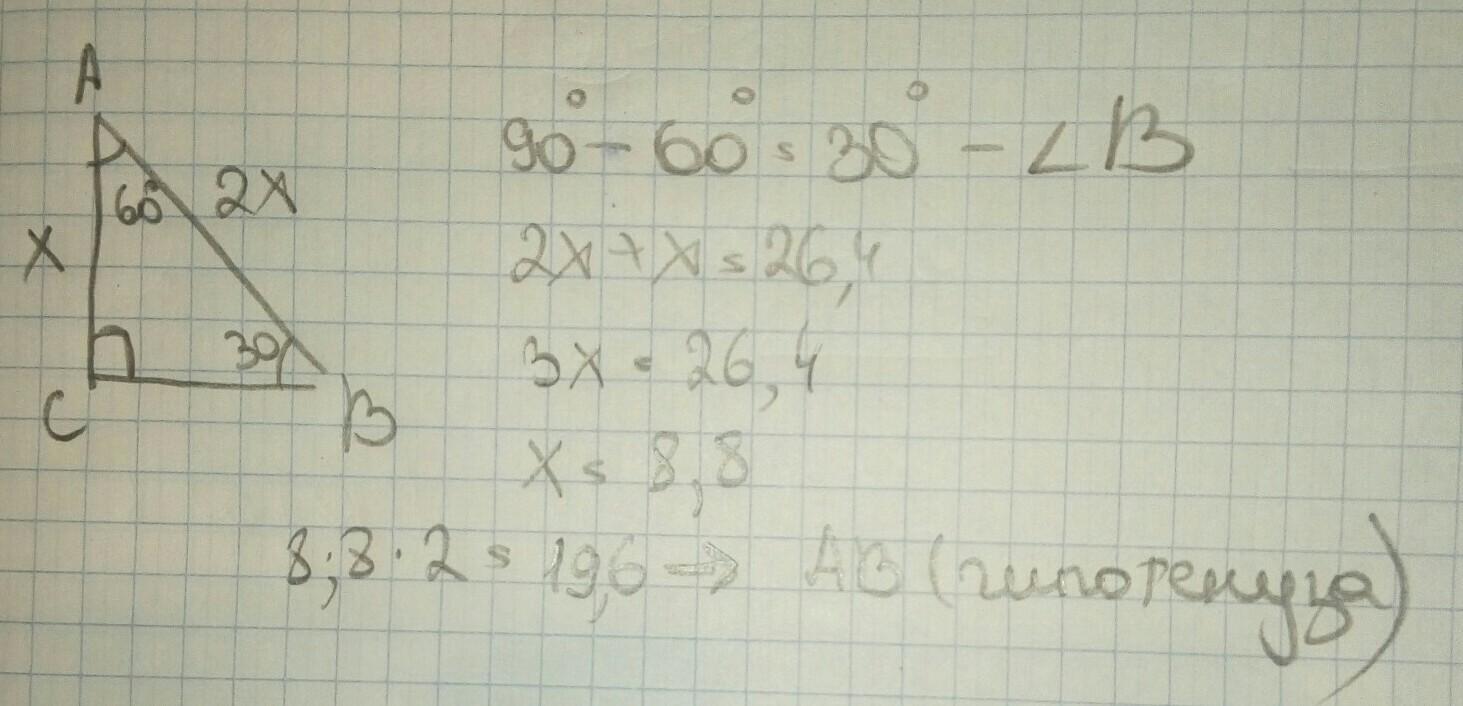 A
60° 2x
x
30
C B
90° - 60° = 30° - ∠B
2x + x = 26,4
3x = 26,4
x = 8,8
8,8 · 2 = 19,6 → AB (гипотенуза)